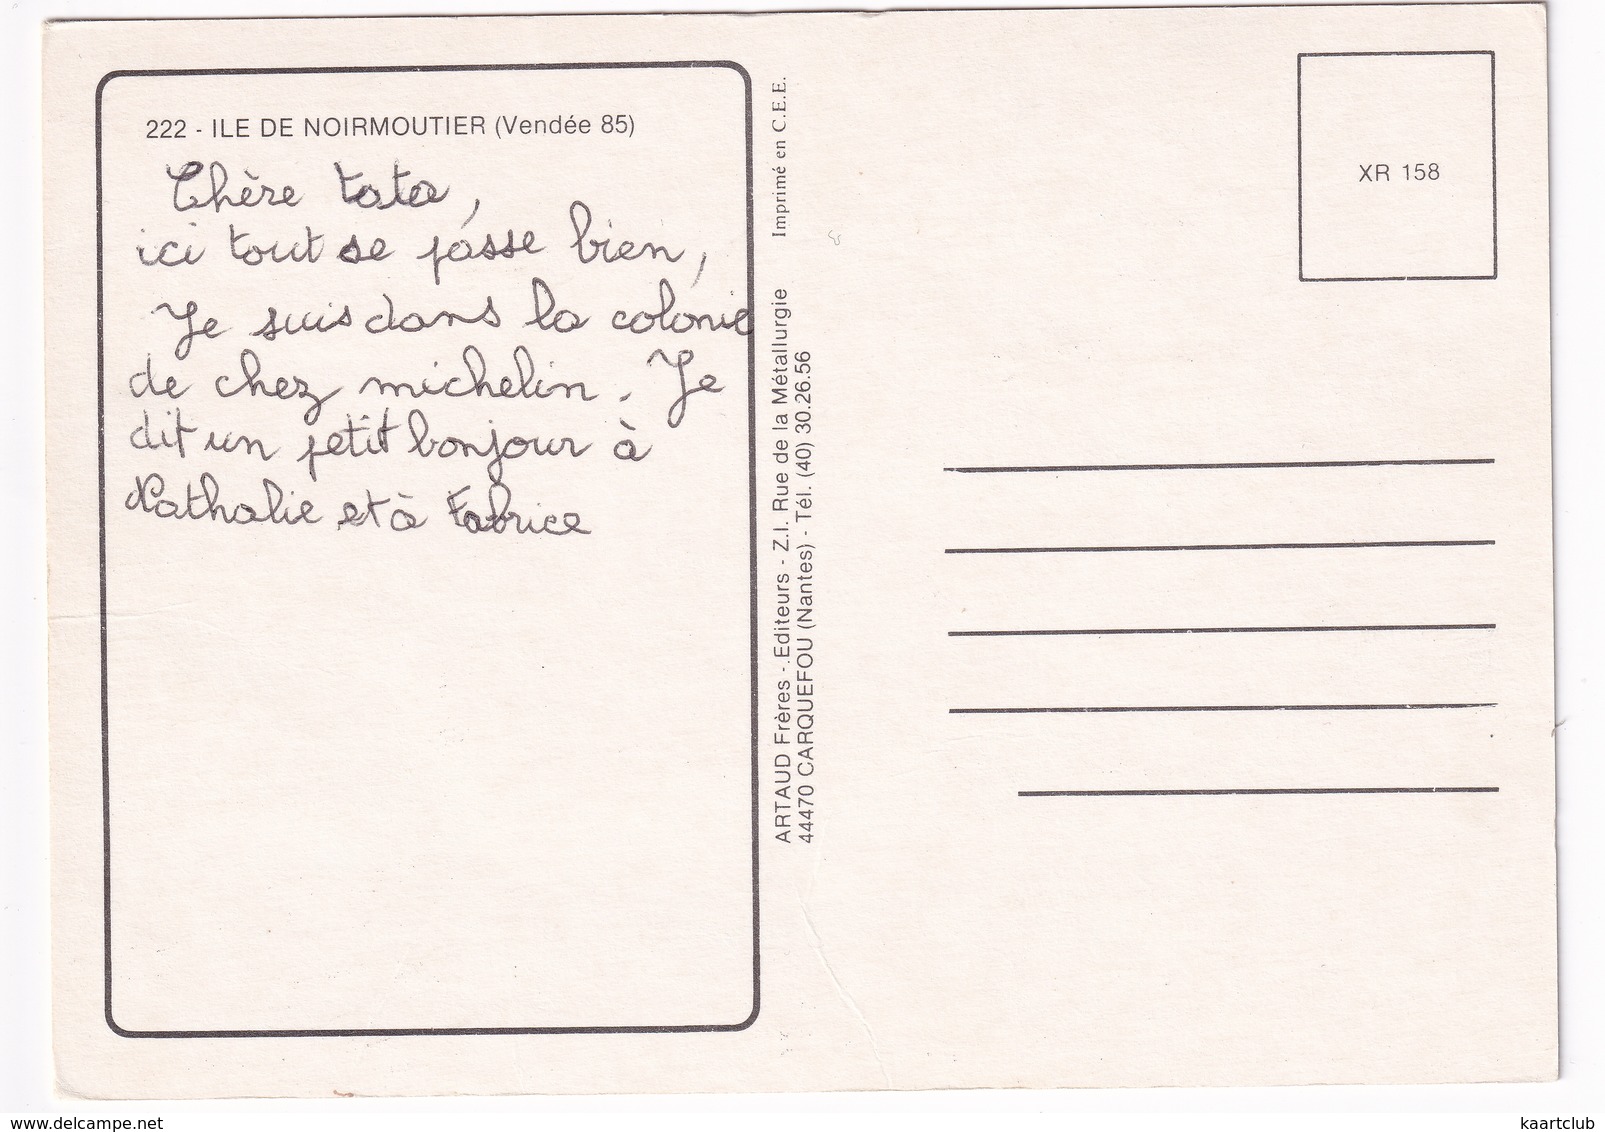 222 - ILE DE NOIRMOUTIER (Vendée 85)
Chère tata,
ici tout se passe bien,
Je suis dans la colonie
de chez michelin. Je
dit un petit bonjour à
Nathalie et à Fabrice
Imprimé en C.E.E.
ARTAUD Frères - Editeurs - Z.I. Rue de la Métallurgie
44470 CARQUEFOU (Nantes) - Tél. (40) 30.26.56
XR 158
delcampe.net
kaartclub